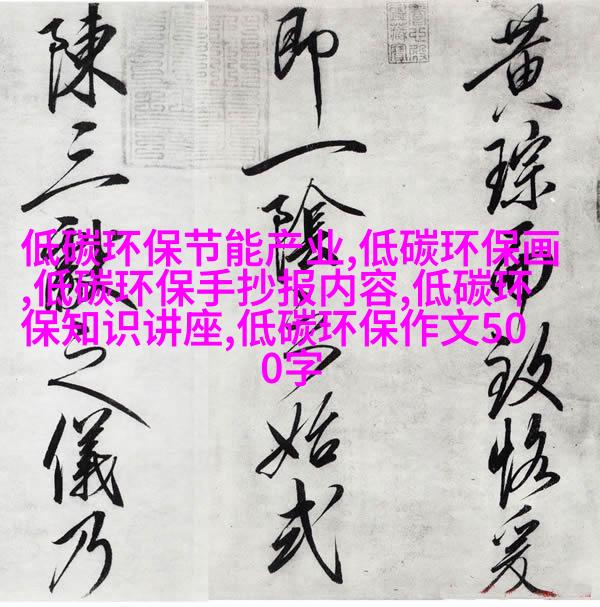 黃琮而致恪爰
即一陰之始式
陳三獻之儀乃
低碳环保节能产业,低碳环保画
,低碳环保手抄报内容,低碳环
保知识讲座,低碳环保作文50
0字